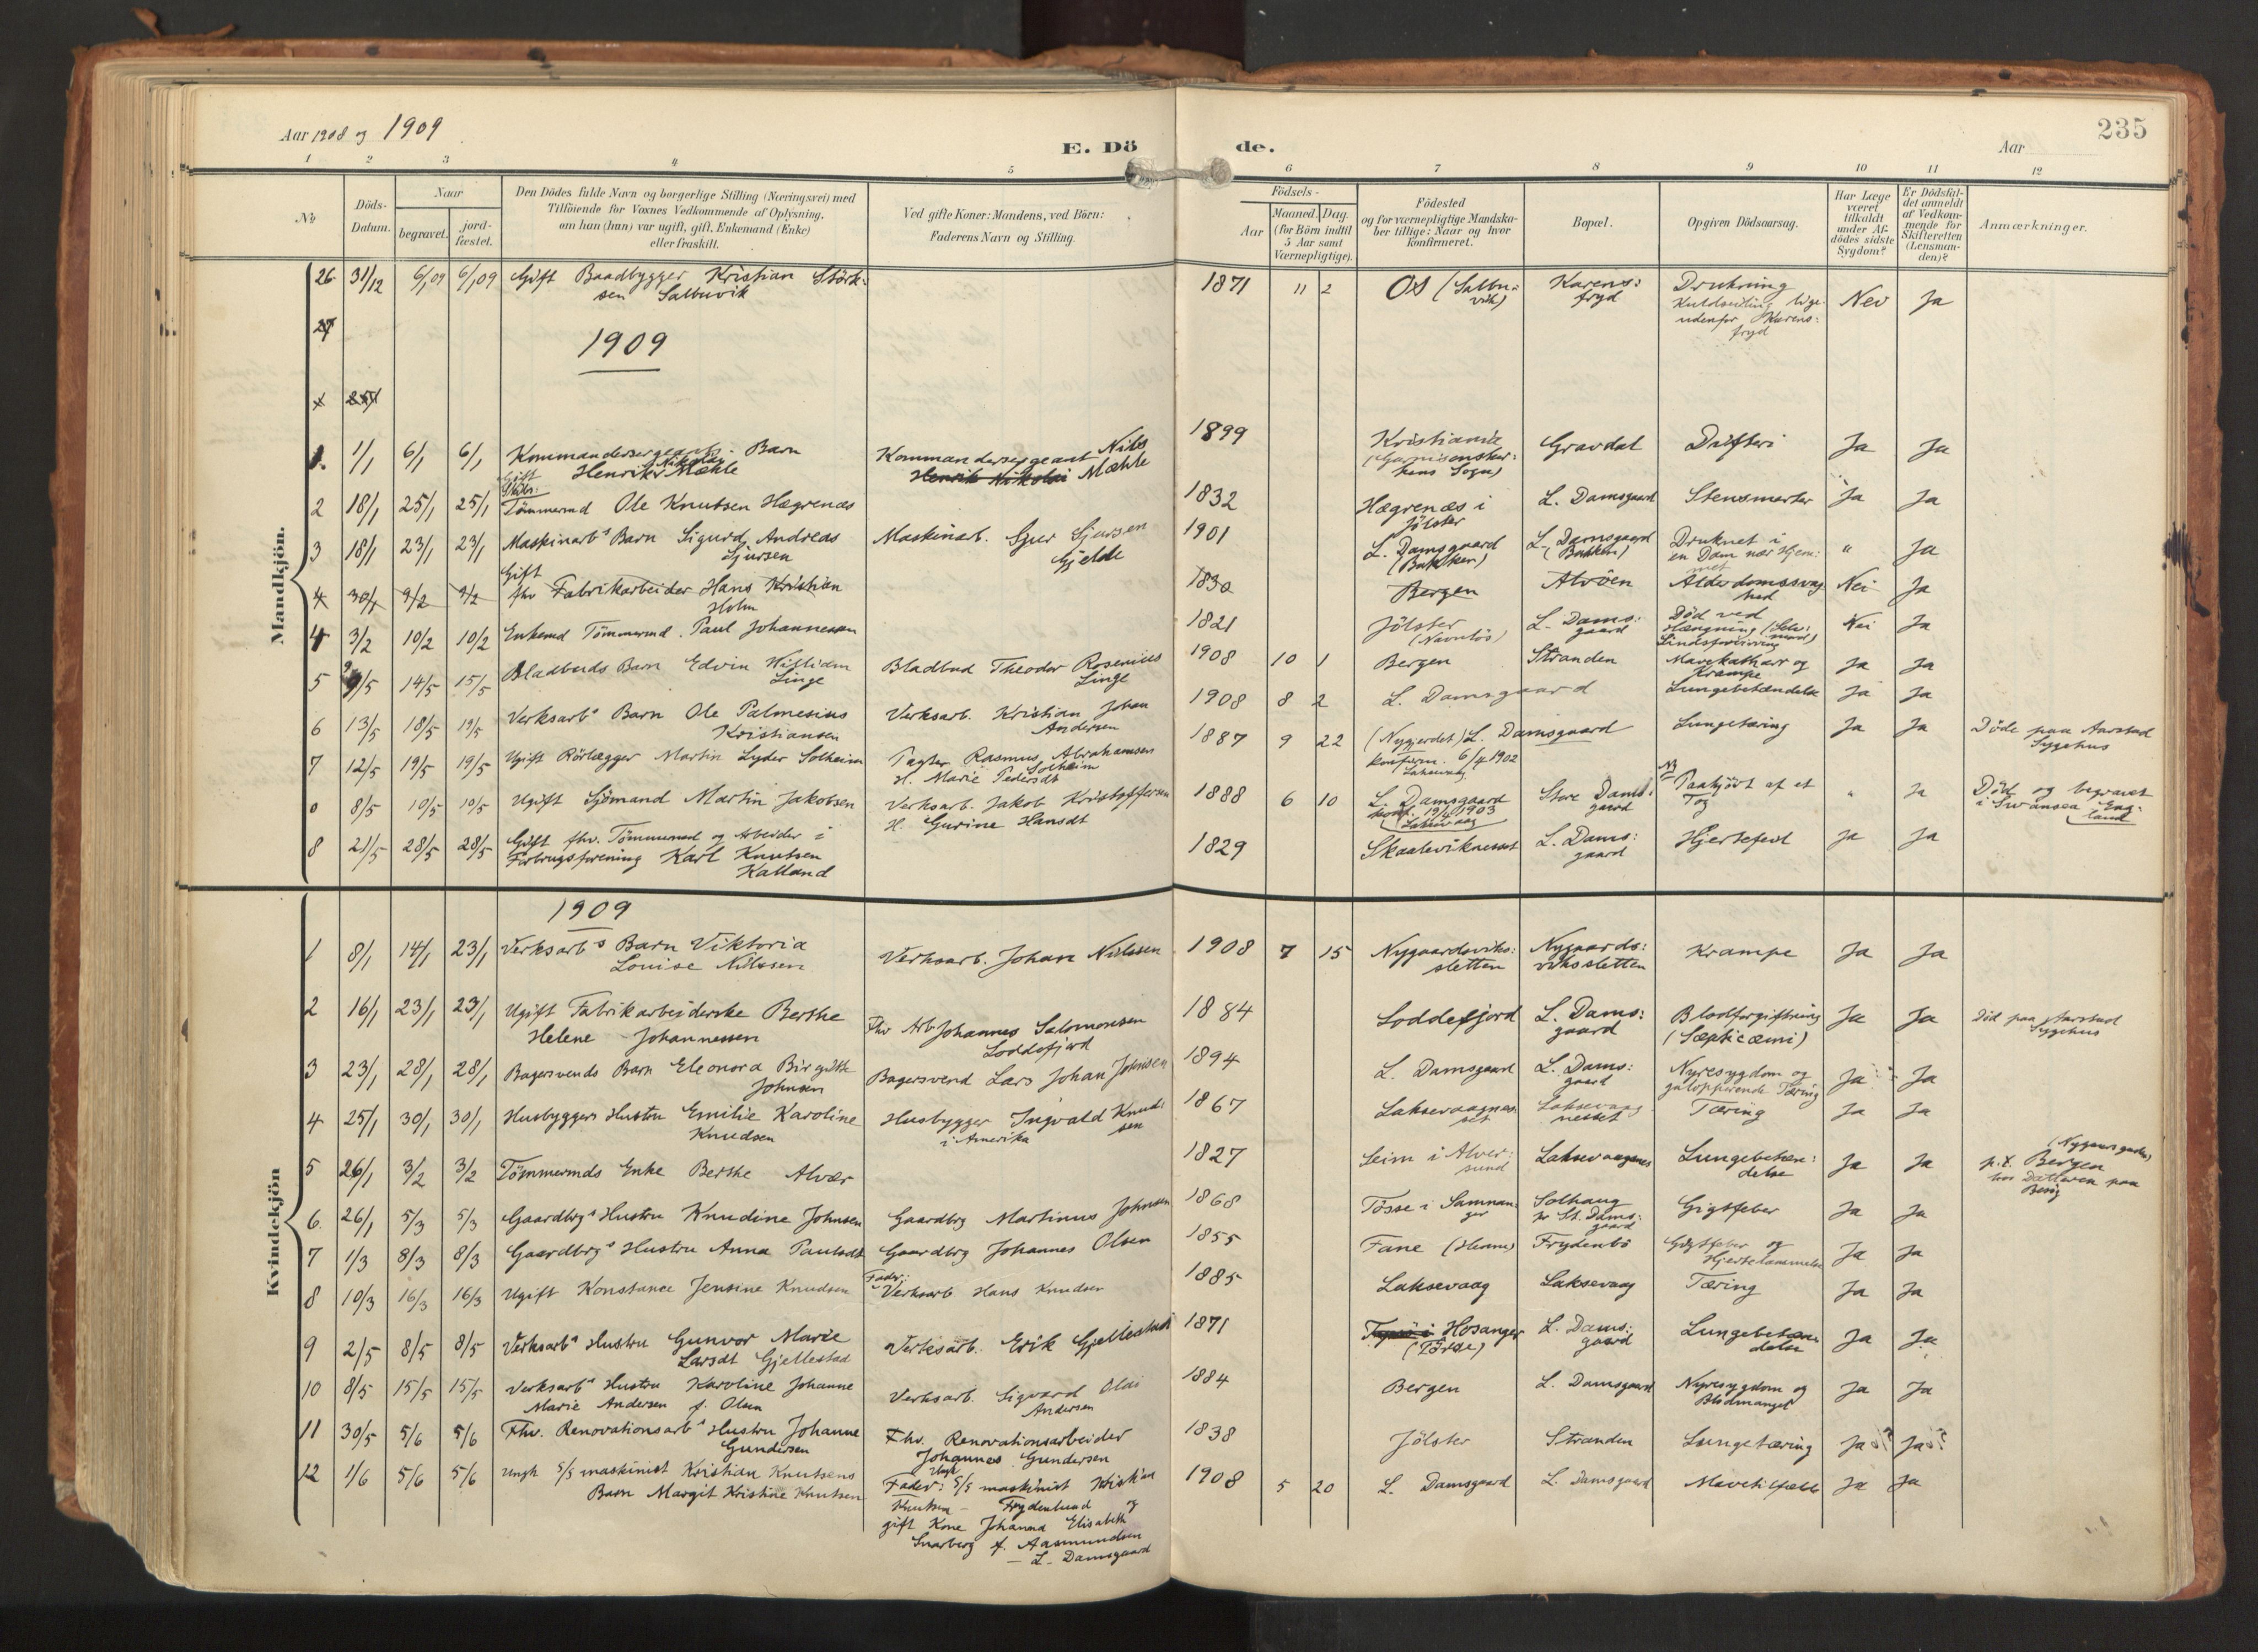 Aar 1908 og 1909
E. Döde.
Aar
235
1 2 3 4 5 6 7 8 9 10 11 12
№
Döds-
Datum.
Naar
begravet.
jord-
fæstet.
Den Dödes fulde Navn og borgerlige Stilling (Næringsvei) med
Tilföiende for Voxnes Vedkommende af Oplysning,
om han (hun) var ugift, gift, Enkemand (Enke)
eller fraskilt.
Ved gifte Koner: Mandens, ved Börn:
Faderens Navn og Stilling.
Födsels-
Aar
Maaned. Dag.
(for Börn indtil
5 Aar samt
Værnepligtige).
Födested
og for værnepligtige Mandska-
ber tillige: Naar og hvor
konfirmeret.
Bopæl.
Opgiven Dödsaarsag.
Har Læge
været
tilkaldt
under Af-
dödes sidste
Sygdom?
Er Dödsfal-
det anmeldt
af Vedkom-
mende for
Skifteretten
(Lensman-
den)?
Anmærkninger.
Mandkjön.
26 31/12 6/1 09 6/1 09 Gift Baadbygger Kristian Störk-
sen Salbuvik
1871 11 2 Os (Salbu-
vik) Karens:
fryd Drukning
Kuldseiling lige
udenfor Karens:
fryd Nei Ja
27
1909
1. 1/1 6/1 6/1 Kommandersergeants Barn
Henrik Nikolai Mæhle
Kommandersergeant Nils
Henrik Nikolai Mæhle
1899 Kristiania
(Garnisonskir:
kens Sogn) Gravdal Difteri Ja Ja
2 18/1 25/1 25/1 Gift
Tömmermd Ole Knutsen Hægrenæs
1832 Hægrenæs i
Jölster L. Damsgaard Stensmerter Ja Ja
3 18/1 23/1 23/1 Maskinarbs Barn Sigurd Andreas
Sjursen
Maskinarb. Sjur Sjursen
Gjelde
1901 L. Damsgaard
(Bakken) L. Damsgaard
(Bakken) Druknet i
en Dam nær Hjem:
met " Ja
4 30/1 9/2 9/2 Gift
fhv Fabrikarbeider Hans Kristian
Holm
1830 Bergen Alvöen Alderdomssvag
hed Nei Ja
4 3/2 10/2 10/2 Enkemd Tömmermd. Paul Johannessen
1821 Jölster
(Navnlös) L. Dams:
gaard Död ved
Hængning (Selv:
mord)
Sindsforvirring Nei Ja
5 9/5 14/5 15/5 Bladbuds Barn Edvin Kristian
Linge
Bladbud Theodor Rosenius
Linge
1908 10 1 Bergen Stranden Mavekatharr og
Krampe Ja Ja
6 13/5 18/5 19/5 Verksarbs Barn Ole Palmesius
Kristiansen
Verksarb. Kristian Johan
Andersen
1908 8 2 L. Damsgaard Lungebetændelse Ja Ja
7 12/5 19/5 19/5 Ugift Rörlægger Martin Lyder Solheim
Rasmus Abrahamsen
Solheim
H. Marie Pedersdt
1887 9 22 (Nygjerdet) L. Damsgaard
konfirm. 6/4 1902
Laksevaag Lungetæring Ja Ja Döde paa Aarstad
Sygehus
0 8/5 10/5 10/5 Ugift Sjömand Martin Jakobsen
Verksarb. Jakob Kristoffersen
H. Gurine Hansdt
1888 6 10 L. Damsgaard
konf. 19/4 1903
Laksevaag Store Dams:
gaard NB
Paakjört af et
Tog " Ja Död og begravet
i Swansea Eng:
land
8 21/5 28/5 28/5 Gift fhv. Tömmermd og Arbeider i
Forbrugsforening Karl Knutsen
Kalland
1829 Skaaleviknesset L. Dams:
gaard Hjertefeil Ja Ja
Kvindekjön
1909
1 8/1 14/1 23/1 Verksarbs Barn Viktoria
Louise Nilssen
Verksarb. Johan Nilssen
1908 7 15 Nygaardsviks:
sletten Nygaards:
vikssletten Krampe Ja Ja
2 16/1 23/1 23/1 Ugift Fabrikarbeiderske Berthe
Helene Johannessen
Fhv Arb Johannes Salomonsen
Loddefjord
1884 Loddefjord L. Dams:
gaard Blodforgiftning
(Septicæmi) Ja Ja Död paa Aarstad
Sygehus
3 23/1 28/1 28/1 Bagersvends Barn Eleonora Birgitte
Johnsen
Bagersvend Lars Johan Johnsen
1894 L. Damsgaard L. Dams:
gaard Nyresygdom og
galopperende Tæring Ja Ja
4 25/1 30/1 30/1 Husbyggers Hustru Emilie Karoline
Knudsen
Husbygger Ingvald Knud:
sen
i Amerika
1867 Laksevaagnes:
set Laksevaag
nesset Tæring Ja Ja
5 26/1 3/2 3/2 Tömmermds Enke Berthe Alvær
1827 Seim i Alver:
sund Laksevaagnes Lungebetæn:
delse Ja Ja p.t. Bergen
hos Datteren paa
Besög
6. 26/1 5/3 5/3 Gaardbrgs Hustru Knudine Johnsen
Gaardbrg Martinus Johnsen
1868 Tösse i Samnan:
ger Solhaug
pr St. Dams:
gaard Gigtfeber Ja Ja
7 1/3 8/3 8/3 Gaardbrgs Hustru Anna Paulsdt
Gaardbrg Johannes Olsen
1855 Fane Frydenbö Gigtfeber og
Hjertelammelse Ja Ja
8 10/3 16/3 16/3 Ugift Konstance Jensine Knudsen
Fader:
Verksarb Hans Knudsen
1885 Laksevaag Laksevaag Tæring Ja Ja
9 2/5 8/5 8/5 Verksarbs Hustru Gunvor Marie
Larsdt Gjellestad
Verksarb. Erik Gjellestad
1871 Hosanger L. Dams:
gaard Lungebetæn
delse Ja Ja
10 8/5 15/5 15/5 Verksarbs Hustru Karoline Johanne
Marie Andersen f. Olsen
Verksarb. Sigvard Olai
Andersen
1884 Bergen L. Damsgaard Nyresygdom og
Blodmangel Ja Ja
11 30/5 5/6 5/6 Fhv. Renovationsarbs Hustru Johanne
Gundersen
Fhv. Renovationsarbeider
Johannes Gundersen
1838 Jölster Stranden Lungetæring Ja Ja
12 1/6 5/6 5/6 Ungk S/S maskinist Kristian Knutsens
Barn Margit Kristine Knutsen
Ungk
Fader: S/S maskinist Kristian
Knutsen - Frydenlund og
gift Kone Johanna Elisabeth
Snarberg f. Aamundsen
- L. Damsgaard
1908 5 20 L. Damsgaard L. Damsgaard Mavetilfælde Ja Ja